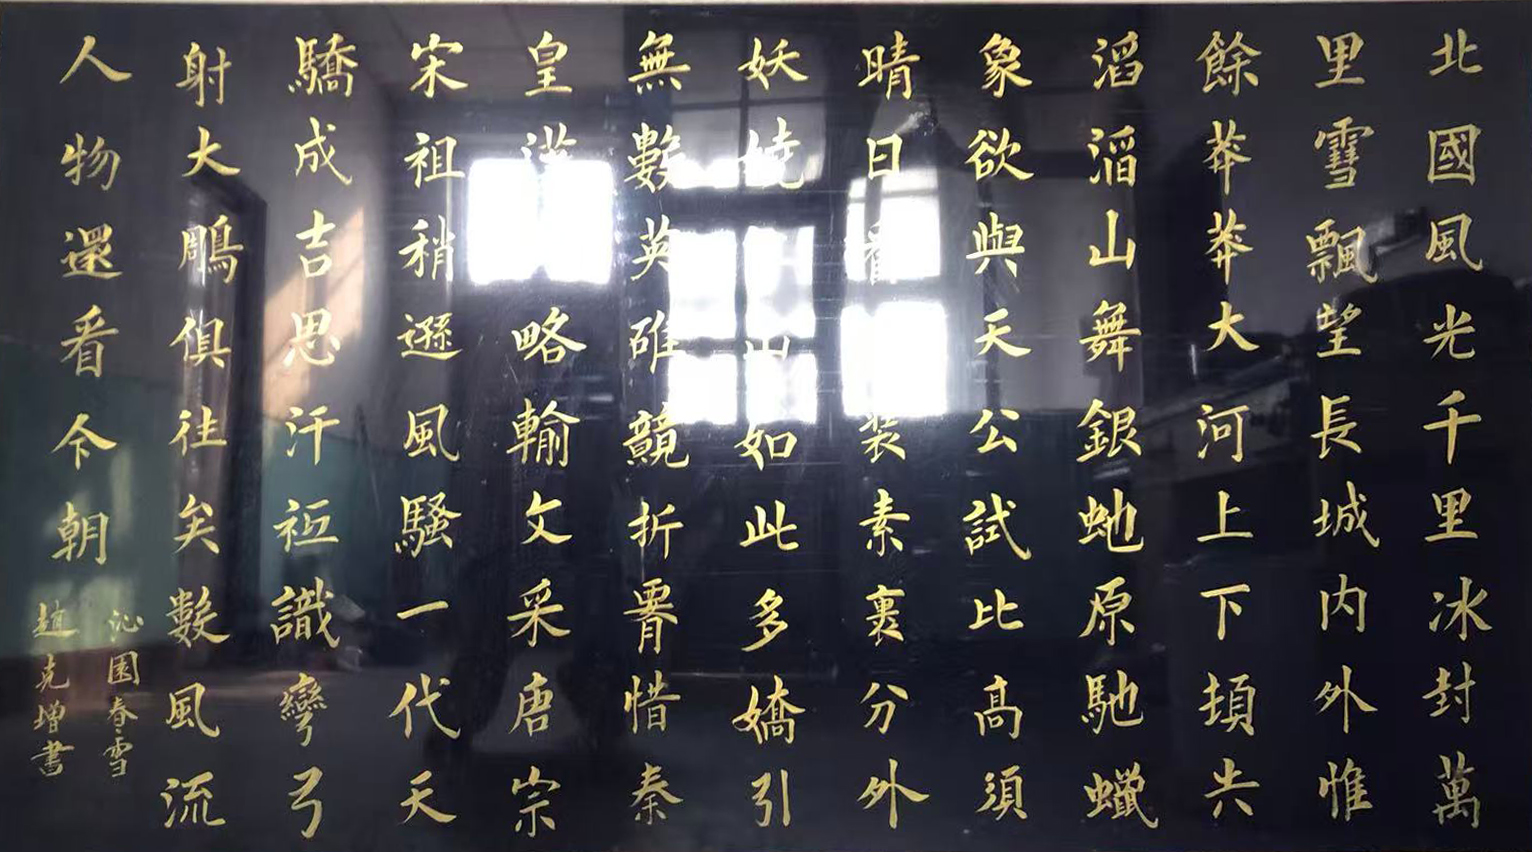 北國風光千里冰封萬
里雪飄望長城内外惟
餘莽莽大河上下頓失
滔滔山舞銀虵原馳蠟
象欲與天公試比高須
晴日看装素裹分外
妖嬈山如此多嬌引
無數英雄競折腰惜秦
皇漢略輸文采唐宗
宋祖稍遜風騷一代天
驕成吉思汗祗識彎弓
射大鵰俱往矣數風流
人物還看今朝
沁園春·雪
趙克增書